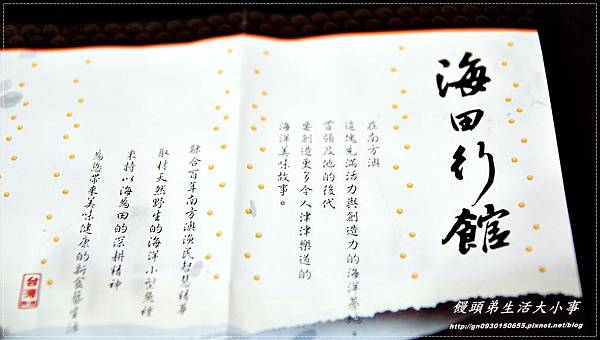 海田行館
在南方澳
這塊充滿活力與創造力的海洋基地。
首領及他的後代
要創造更多令人津津樂道的
海洋美味故事。
融合百年南方澳漁民智慧精華
取材天然野生的海洋小型魚種
秉持以海為田的深耕精神
為您帶來美味健康的新食藝生活
台灣
饅頭弟生活大小事
http://gn0930150655.pixnet.net/blog